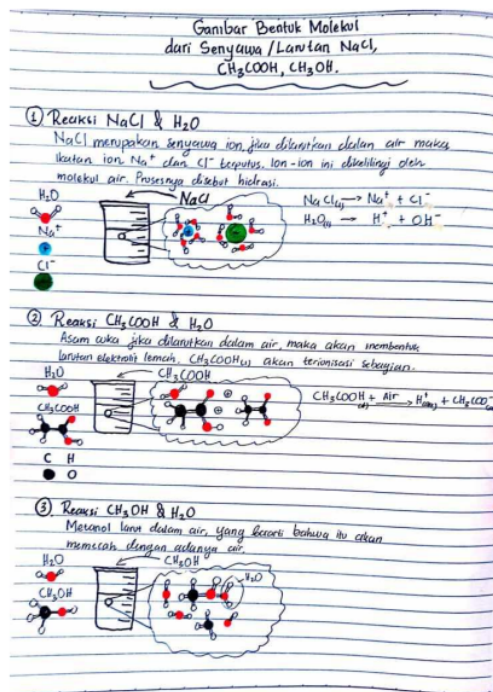 Gambar Bentuk Molekul
dari Senyawa / Larutan NaCl,
CH₃COOH, CH₃OH.
① Reaksi NaCl & H₂O
NaCl merupakan senyawa ion, jika dilarutkan dalam air maka
ikatan ion Na⁺ dan Cl⁻ terputus. Ion-ion ini dikelilingi oleh
molekul air. Prosesnya disebut hidrasi.
H₂O
NaCl
NaCl → Na⁺ + Cl⁻
H₂O → H⁺ + OH⁻
Na⁺
Cl⁻
② Reaksi CH₃COOH & H₂O
Asam cuka jika dilarutkan dalam air, maka akan membentuk
larutan elektrolit lemah. CH₃COOH akan terionisasi sebagian.
H₂O
CH₃COOH
CH₃COOH + Air → H⁺ + CH₃COO⁻
CH₃COOH
C H
③ Reaksi CH₃OH & H₂O
Metanol larut dalam air, yang berarti bahwa itu akan
memecah dengan adanya air.
H₂O
CH₃OH
H₂O
CH₃OH